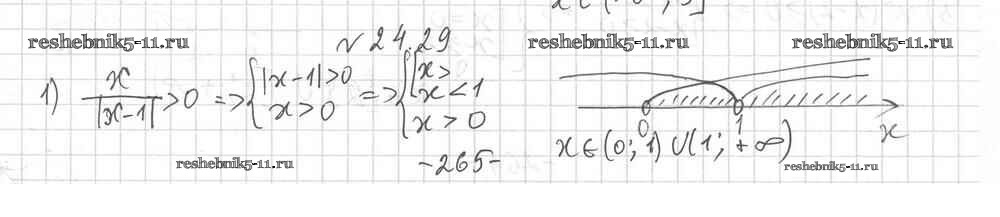 x ∈ (-∞; 3]
№ 24.29
reshebnik5-11.ru reshebnik5-11.ru reshebnik5-11.ru
1) x/|x-1| > 0 => { |x-1|>0 x>0 => { [ x> x<1 x>0
0 1 x
x ∈ (0; 1) ∪ (1; +∞)
-265-
reshebnik5-11.ru reshebnik5-11.ru